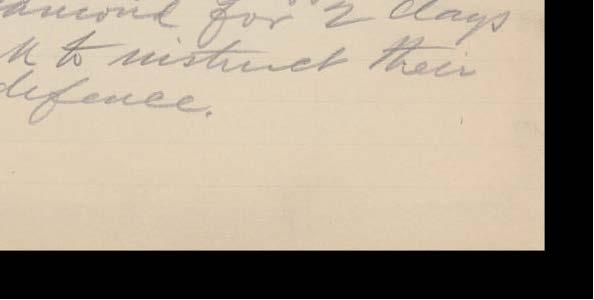 for 2 days
to instruct their
defence.